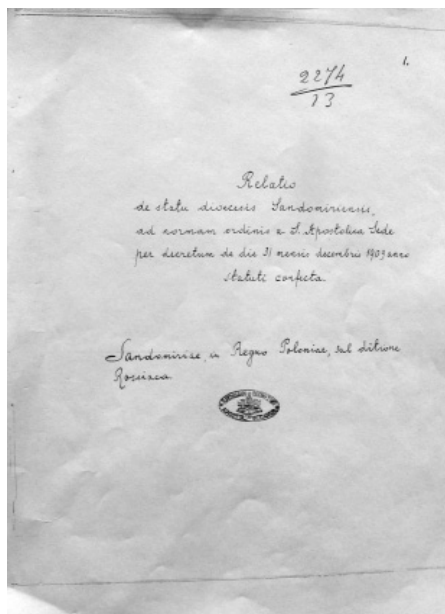 1.
2274
13
Relatio
de statu dioecesis Sandomiriensis,
ad normam ordinis a S. Apostolica Sede
per decretum de die 31 mensis decembris 1909 anno
statuti confecta.
Sandomiriae, in Regno Poloniae, sub ditione
Rossiaca